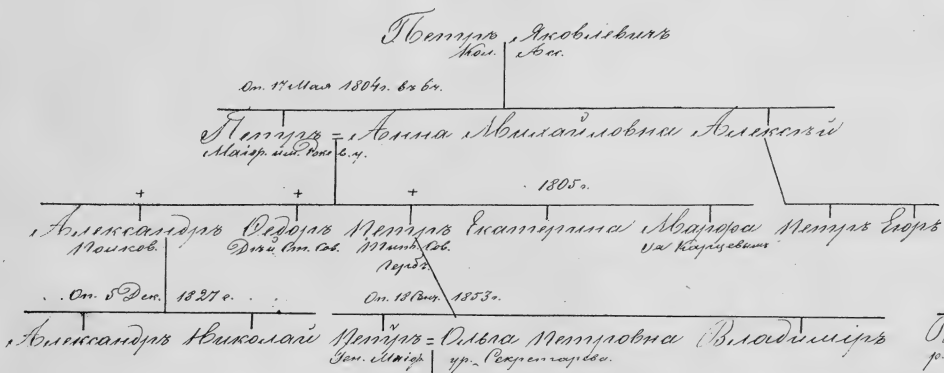 Петръ Яковлевичъ
Кол. Асс.
Оп. 17 Мая 1804 г. въ 6 ч.
Петръ = Анна Михайловна Алексѣй
Маіор. им.
+ + + 1805 г.
Александръ Ѳедоръ Петръ Екатерина Марѳа Петръ Егоръ
Полков. Дѣй. Ст. Сов. Тит. Сов. за Карцевымъ
Герб.
Оп. 5 Дек. 1827 г. Оп. 18 1853 г.
Александръ Николай Петръ = Ольга Петровна Владиміръ
Ген. Маіор ур. Секретарева.